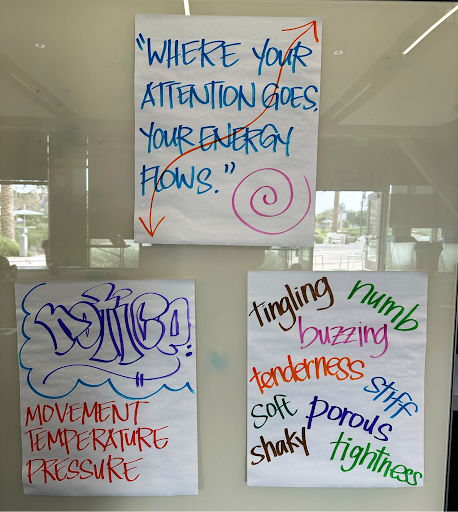 "WHERE YOUR
ATTENTION GOES,
YOUR ENERGY
FLOWS."
NOTICE:
MOVEMENT
TEMPERATURE
PRESSURE
tingling numb
buzzing
tenderness
stiff
soft porous
shaky tightness